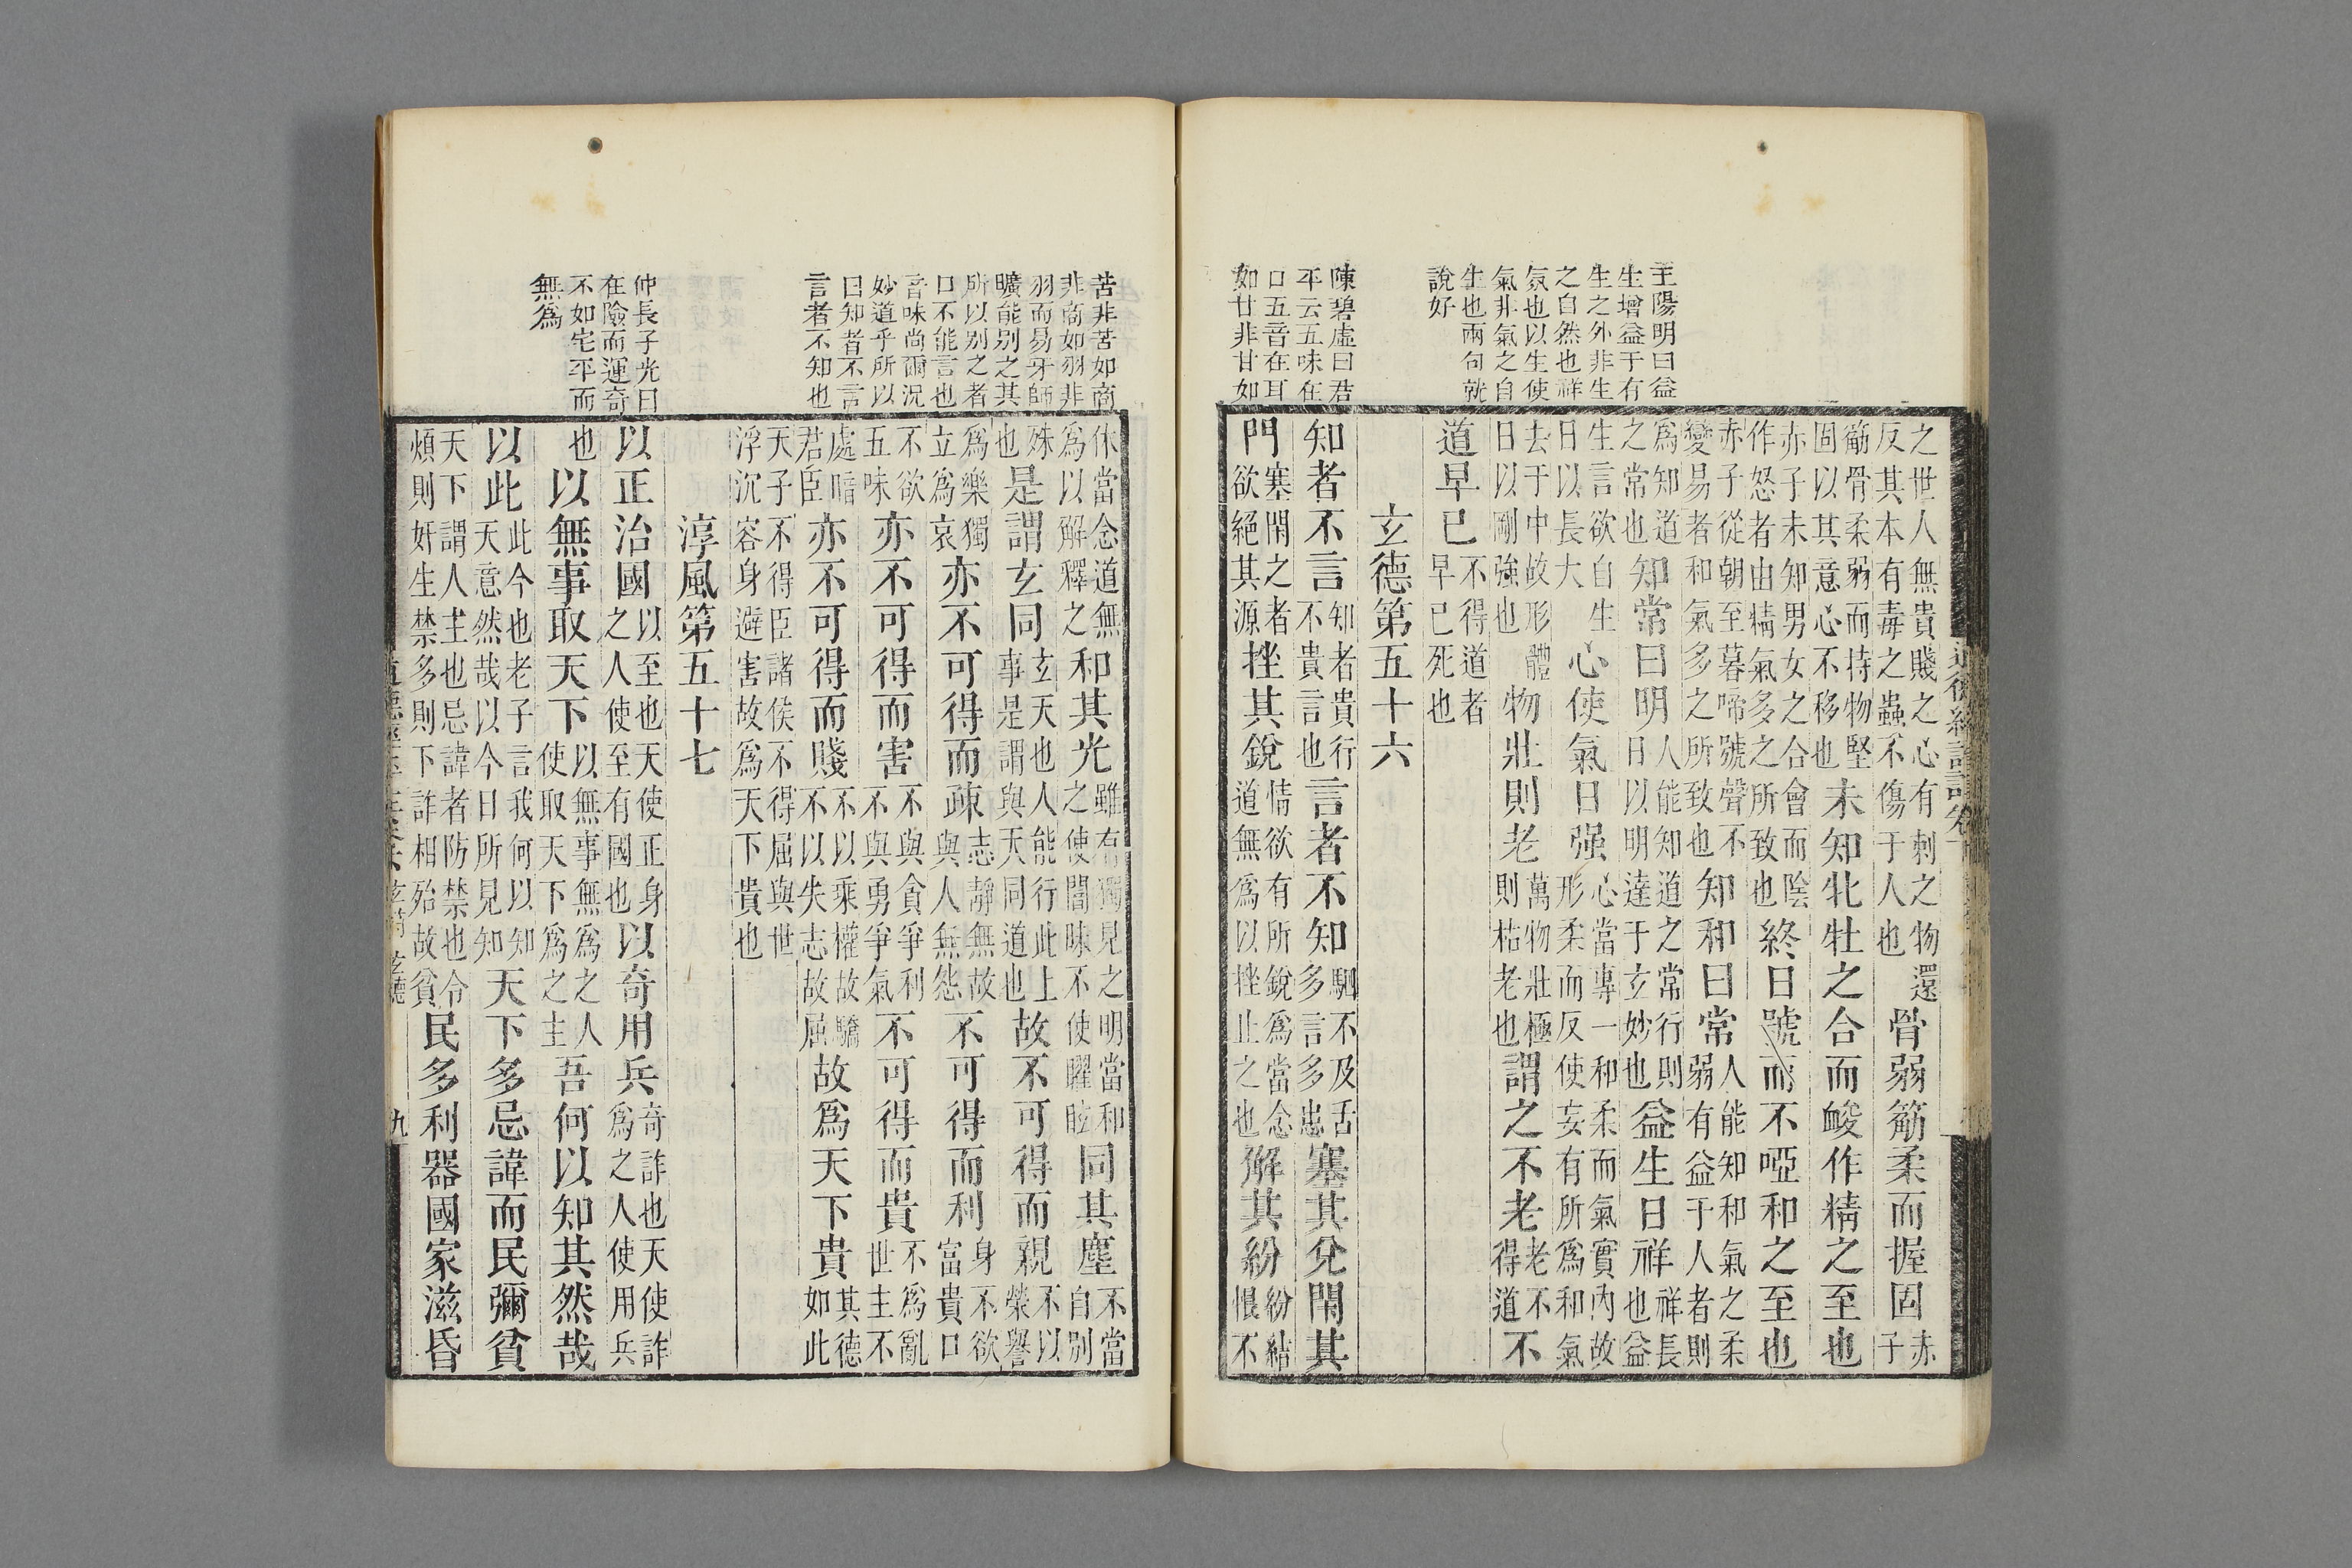 王陽明曰益
生增益于有
生之外非生
之自然也祥
氛也以生使
氣非氣之自
生也兩句就
說好
陳碧虛曰君
平云五味在
口五音在耳
如甘非甘如
之世人無貴賤之心有刺之物還反其本有毒之蟲不傷于人也骨弱筋柔而握固赤子
筋骨柔弱而持物堅固以其意心不移也未知牝牡之合而峻作精之至也
赤子未知男女之合會而陰作怒者由精氣多之所致也終日號而不啞和之至也
赤子從朝至暮啼號聲不變易者和氣多之所致也知和曰常人能知和氣之柔弱有益于人者則
爲知道之常也知常曰明人能知道之常行則日以明達于玄妙也益生曰祥祥長也益
生言欲自生日以長大心使氣曰强心當專一和柔而氣實內故形柔而反使妄有所爲和氣
去于中故形體日以剛強也物壯則老萬物壯極則枯老也謂之不老老不得道不
道早已不得道者早已死也
玄德第五十六
知者不言知者貴行不貴言也言者不知駟不及舌多言多患塞其兌閉其
門塞閉之者欲絕其源挫其銳情欲有所銳爲當念道無爲以挫止之也解其紛紛結恨不
苦非苦如商
非商如羽非
羽而易牙師
曠能别之其
所以别之者
口不能言也
音味尚爾況
妙道乎所以
曰知者不言
言者不知也
仲長子光曰
在險而運奇
不如宅平而
無爲
休當念道無爲以解釋之和其光雖有獨見之明當和之使闇昧不使曜眩同其塵不當自别
殊也是謂玄同玄天也人能行此上事是謂與天同道也故不可得而親不以榮譽
爲樂獨立爲哀亦不可得而疎志靜無故與人無怨不可得而利身不欲富貴口
不欲五味亦不可得而害不與貪爭利不與勇爭氣不可得而貴不爲亂世主不
處暗君臣亦不可得而賤不以乘權故驕不以失志故屈故爲天下貴其德如此
天子不得臣諸侯不得屈與世浮沉容身避害故爲天下貴也
淳風第五十七
以正治國以至也天使正身之人使至有國也以奇用兵奇詐也天使詐爲之人使用兵
也以無事取天下以無事無爲之人使取天下爲之主吾何以知其然哉
以此此今也老子言我何以知天意然哉以今日所見知天下多忌諱而民彌貧
天下謂人主也忌諱者防禁也令煩則奸生禁多則下詐相殆故貧民多利器國家滋昏
九